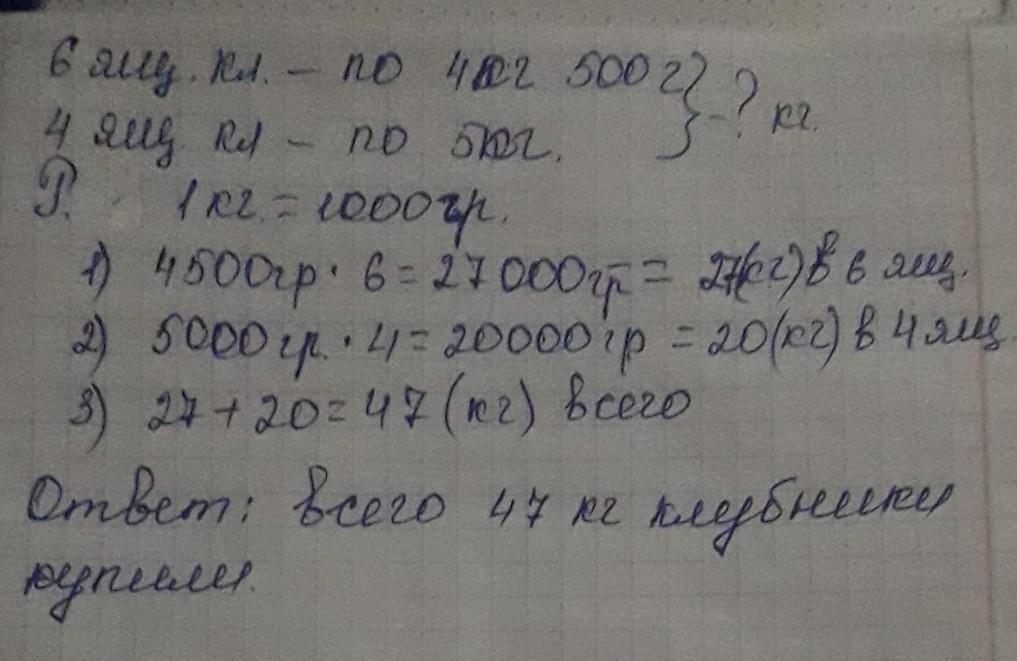 6 ящ. кл. – по 4кг 500г } - ? кг.
4 ящ кл – по 5кг.
Р. 1кг. = 1000гр.
1) 4500гр · 6 = 27000гр = 27(кг) в 6 ящ.
2) 5000гр. · 4 = 20000гр = 20(кг) в 4 ящ
3) 27 + 20 = 47 (кг) всего
Ответ: всего 47 кг клубники
купили.